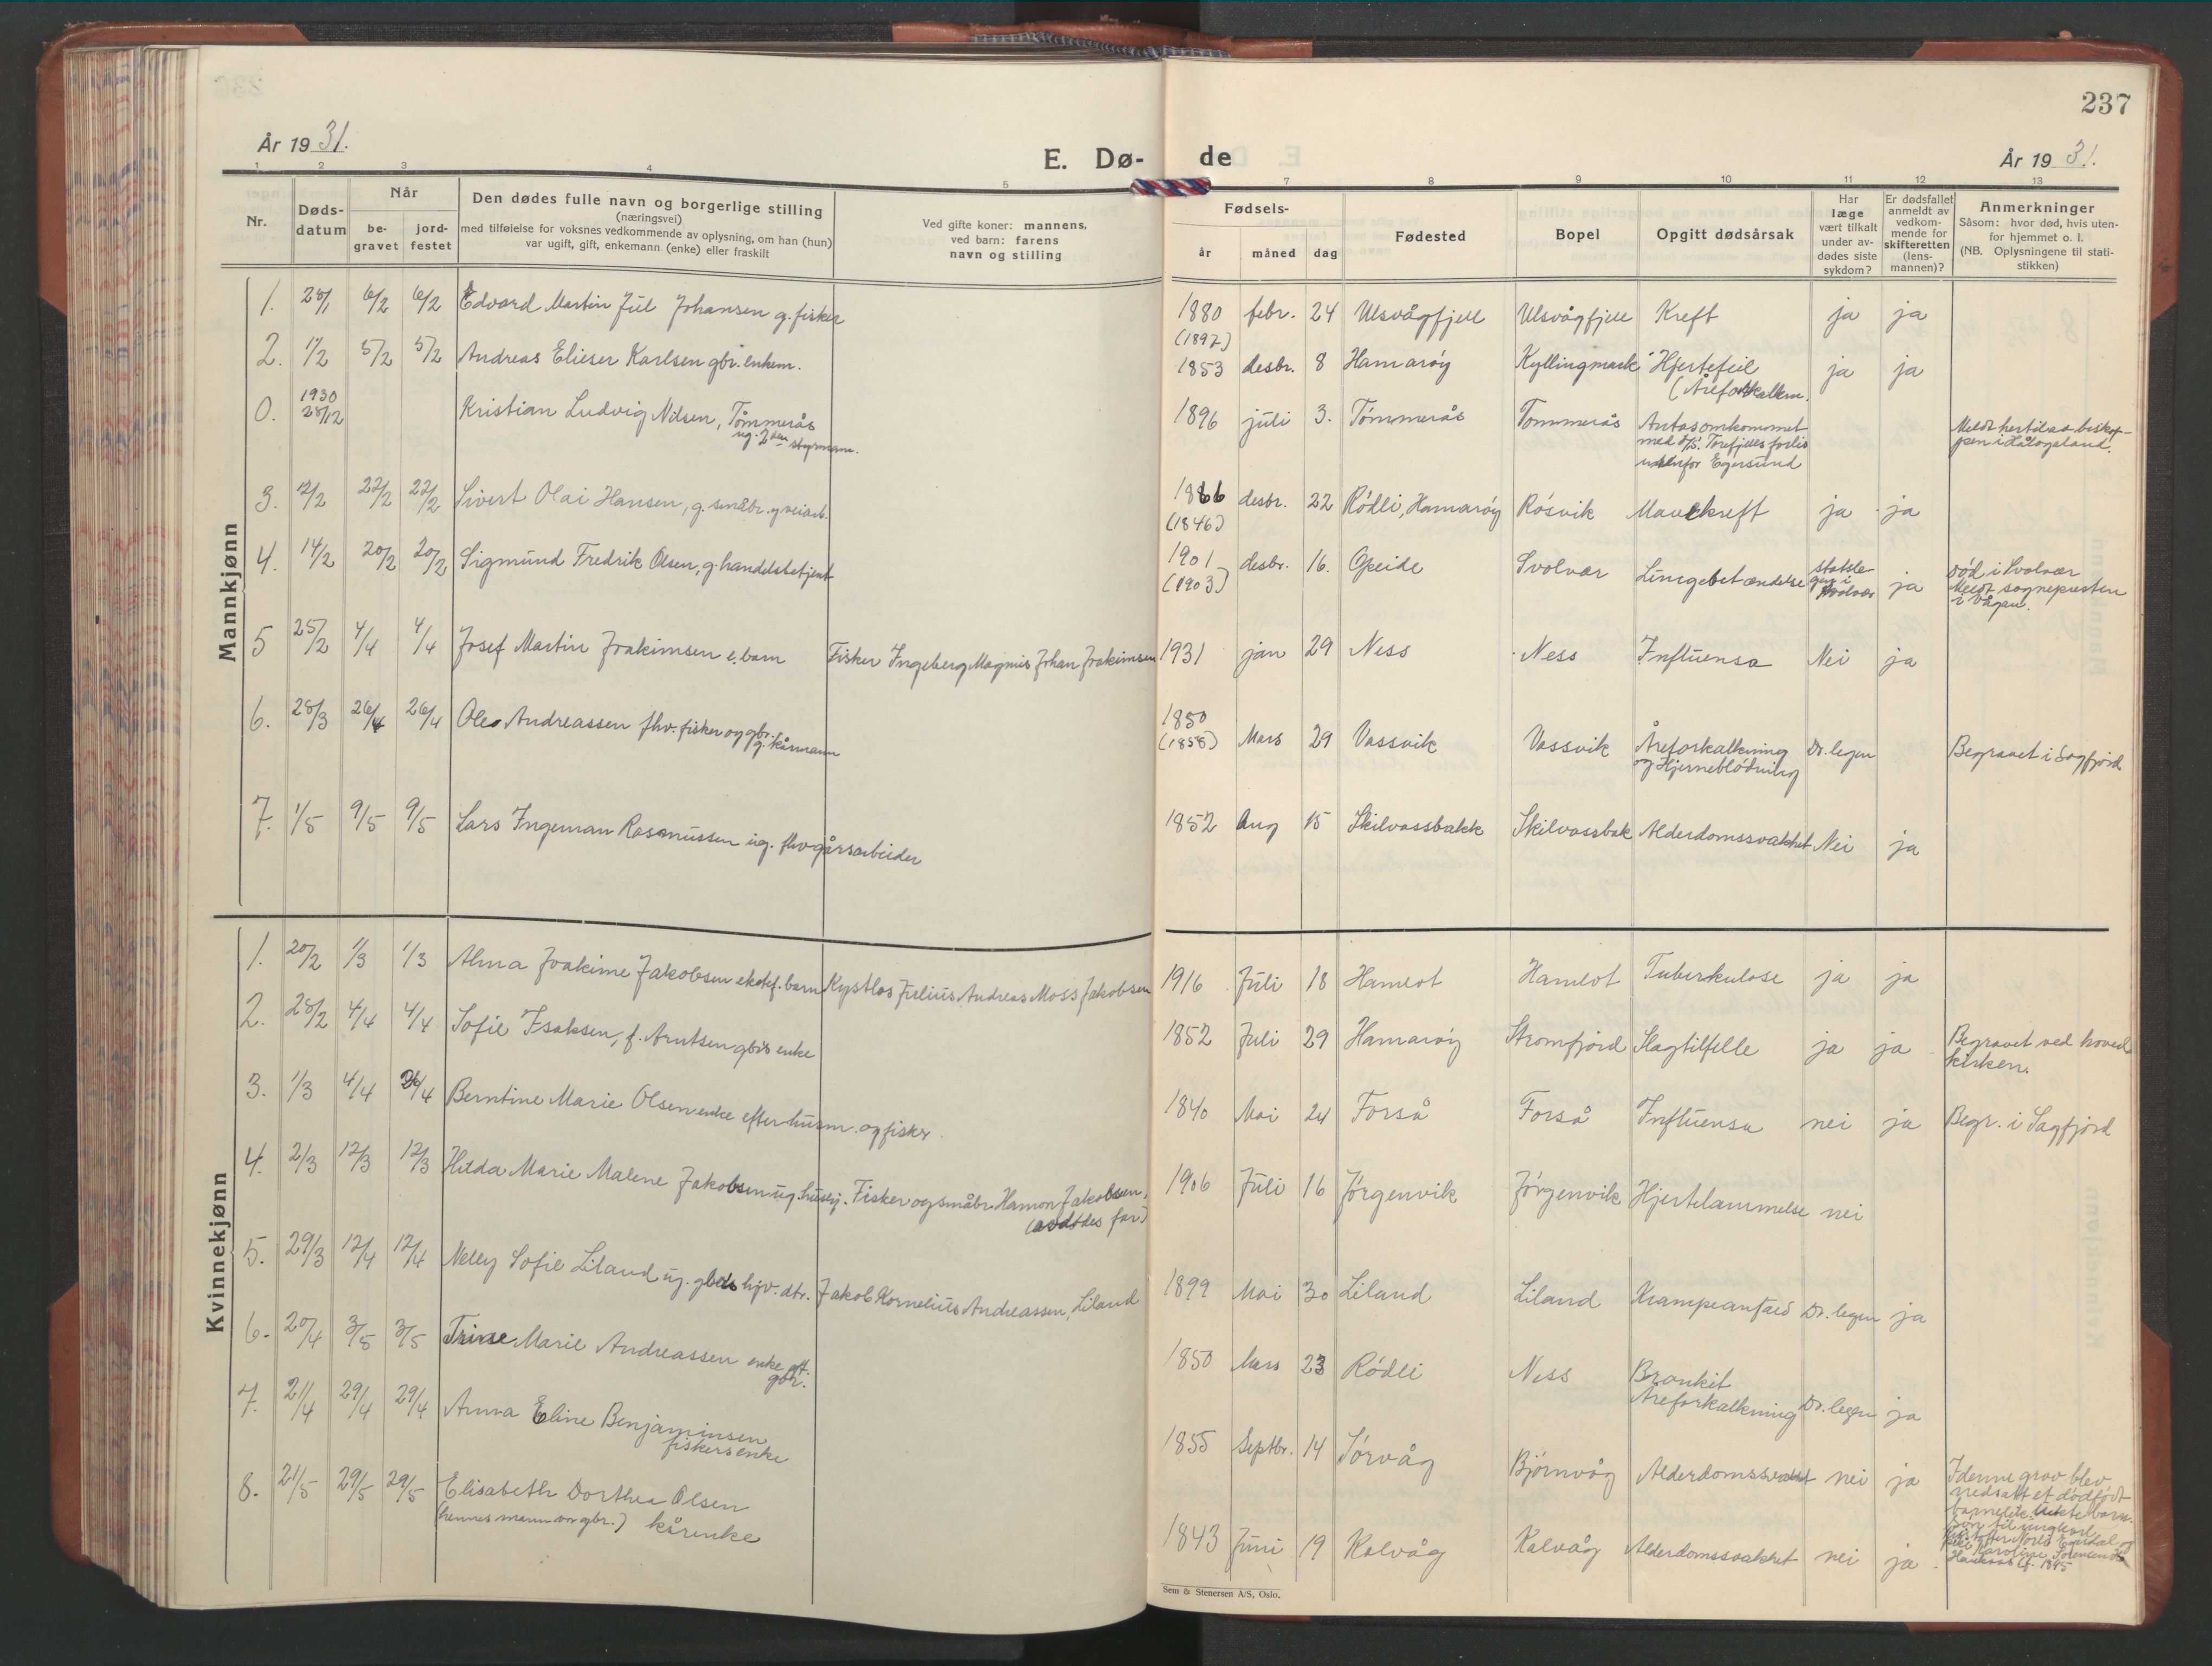 237
År 1931.
E. Dø-
de
År 1931.
1 2 3 4 5 7 8 9 10 11 12 13
Nr.
Døds-
datum
Når
be-
gravet
jord-
festet
Den dødes fulle navn og borgerlige stilling
(næringsvei)
med tilføielse for voksnes vedkommende av oplysning, om han (hun)
var ugift, gift, enkemann (enke) eller fraskilt
Ved gifte koner: mannens,
ved barn: farens
navn og stilling
Fødsels-
år måned dag
Fødested
Bopel
Opgitt dødsårsak
Har
læge
vært tilkalt
under av-
dødes siste
sykdom?
Er dødsfallet
anmeldt av
vedkom-
mende for
skifteretten
(lens-
mannen)?
Anmerkninger
Såsom: hvor død, hvis uten-
for hjemmet o. l.
(NB. Oplysningene til stati-
stikken)
Mannkjønn
1. 28/1 6/2 6/2 Edvard Martin Jul Johansen g. fisker 1880 (1897) febr. 24 Ulsvågfjell Ulsvågfjell Kreft ja ja
2. 1/2 5/2 5/2 Andreas Elieser Karlsen gbr. enkem. 1853 desbr. 8 Hamarøy Kyllingmark Hjertefeil ja ja
(Åreforkalkn.
0. 1930 28/12 Kristian Ludvig Nilsen, Tømmerås 1896 juli 3. Tømmerås Tømmerås Antas omkommet Meldt hertil av biskop-
ug. 2den styrmann. med D/S. Torefjells forlis pen i Hålogaland.
utenfor Egersund
3. 12/2 22/2 22/2 Sivert Olai Hansen, g. småbr. og veiarb. 1866 (1846) desbr. 22 Rødli, Hamarøy Røsvik Mavekreft ja ja
4. 14/2 20/2 20/2 Sigmund Fredrik Olsen, g. handelsbetjent 1901 (1903) desbr. 16. Opeide Svolvær Lungebetændelse statslegen i Svolvær ja død i Svolvær
Meldt sognepresten
i Vågan.
5 25/2 4/4 4/4 Josef Martin Joakimsen e. barn Fisker Ingeberg Magnus Johan Joakimsen 1931 jan 29 Ness Ness Influensa Nei ja
6. 28/3 26/4 26/4 Ole Andreassen fhv. fisker og gbr. 1850 (1858) Mars 29 Vassvik Vassvik Åreforkalkning Dr. legen Begravet i Sagfjord
g. kårmann og Hjerneblødning
7. 1/5 9/5 9/5 Lars Ingeman Rasmussen ug. fhv gårsarbeider 1852 Aug 15 Skilvassbakk Skilvassbak Alderdomssvakhet Nei ja
Kvinnekjønn
1. 20/2 1/3 1/3 Alma Joakime Jakobsen ektef. barn Kystlos Julius Andreas Moss Jakobsen 1916 Juli 18 Hamlot Hamlot Tuberkulose ja ja
2. 28/2 4/4 4/4 Sofie Isaksen, f. Arntsen gbrs enke 1852 Juli 29 Hamarøy Strømfjord Slagtilfelle ja ja Begravet ved hoved
kirken.
3. 1/3 4/4 26/4 Berntine Marie Olsen enke efter husm. og fisker 1840 Mai 24 Forså Forså Influensa nei ja Begr. i Sagfjord
4. 2/3 12/3 12/3 Hilda Marie Malene Jakobsen ug. husbj. Fisker og småbr. Hamon Jakobsen, 1906 Juli 16 Jørgenvik Jørgenvik Hjertelammelse nei
(avdødes far)
5. 29/3 12/4 12/4 Nelly Sofie Liland ug. gbrs hjv. dtr. Jakob Kornelius Andreassen, Liland 1899 Mai 30 Liland Liland Krampeanfald Dr. legen ja
6. 20/4 3/5 3/5 Trine Marie Andreassen enke eft. 1850 Mars 23 Rødli Ness Bronkit
gbr. Åreforkalkning Dr. legen ja
7. 21/4 29/4 29/4 Anna Eline Benjaminsen 1855 Septbr. 14 Sørvåg Bjørnvåg Alderdomssvakhet nei ja
fiskers enke
8. 21/5 29/5 29/5 Elisabeth Dorthea Olsen 1843 Juni 19 Kalvåg Kalvåg Alderdomssvakhet nei ja
(hennes mann var gbr.) kårenke
I denne grav blev
nedsatt et dødfødt
Sem & Stenersen A/S, Oslo.